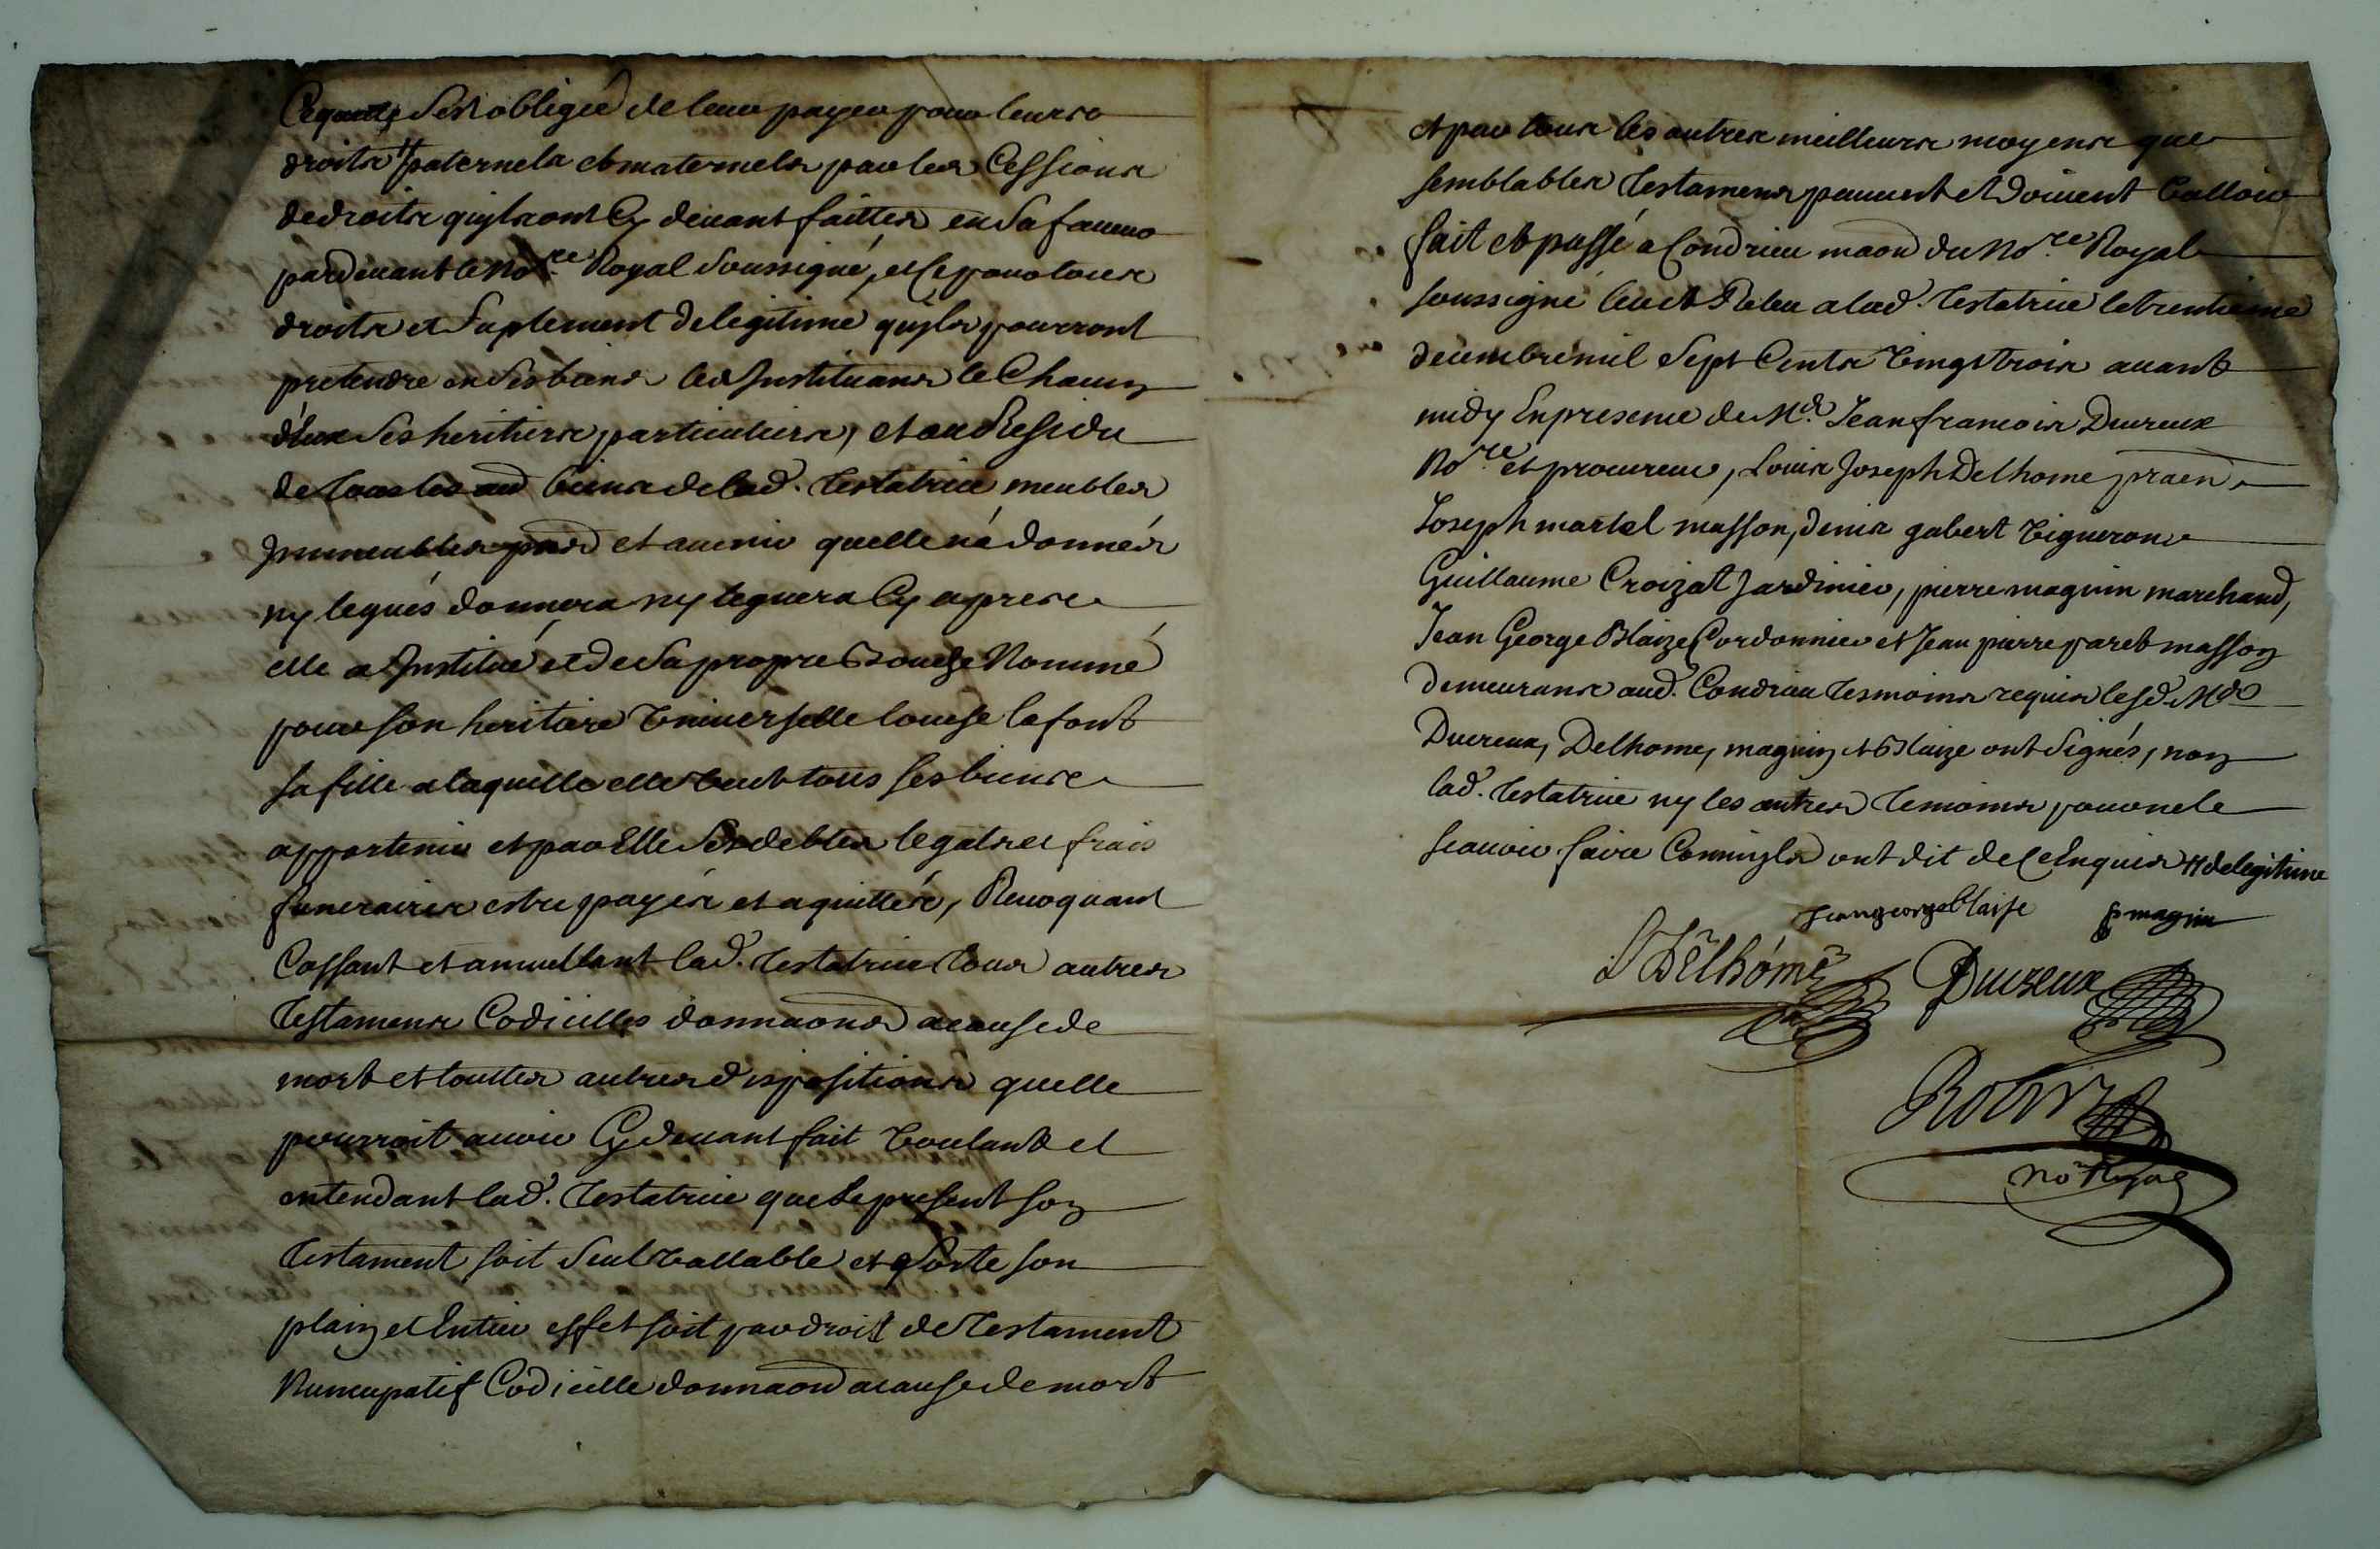 Cequelle s'est obligée de leur payer pour leurs
droits # paternels et maternels par les Cessions
de droits quyls ont Cy devant faittes en sa faveur
pardevant le No.re Royal soussigné, et Ce pour tous
droits et suplement de legitime quyls pourront
pretendre en ses biens les Instituans Chacun
d'eux ses heritiers particuliers, et au Residu
de tous les biens de lad. testatrice meubles
Immeubles et avenir quelle n'a donnés
ny legués donnera ny leguera Cy apres
elle a Institué et de sa propre Bouche Nommé
pour son heritiere Universelle louise lafont
sa fille a laquelle elle veut tous ses biens
appartenir et par Elle ses debtes legats et frais
funeraires estre payés et aquittés, Revoquant
Cassant et annullant lad. testatrice tous autres
testamens Codicilles donnaons a cause de
mort et touttes autres dispositions quelle
pourroit avoir Cy devant fait voulant et
entendant lad. testatrice que le present son
testament soit seul vallable et sorte son
plain et Entier effet soit par droit de testament
Nuncupatif Codicille donnaon a cause de mort
et par tous les autres meilleurs moyens que
semblables testamens peuvent et doivent valloir
fait et passé a Condrieu maon du No.re Royal
soussigné leu et Releu a lad. testatrice le trentieme
decembre mil sept Cents vingt trois avant
midy En presence de M.e Jean francois Ducreux
No.re et procureur, Louis Joseph Delhome praen,
Joseph martel masson, denis gabert vigneron
Guillaume Croizat Jardinier, pierre magnin marchand,
Jean George Blaize Cordonnier et Jean pierre paret masson
demeurans aud. Condrieu tesmoins requis lesd. M.es
Ducreux, Delhome, magnin et Blaize ont signés, non
lad. testatrice ny les autres temoins pour ne le
scavoir faire Comm'yls ont dit de Ce Enquis # de legitime
Jean george blaise p magnin
L Delhome Ducreux
Robin
No Royal